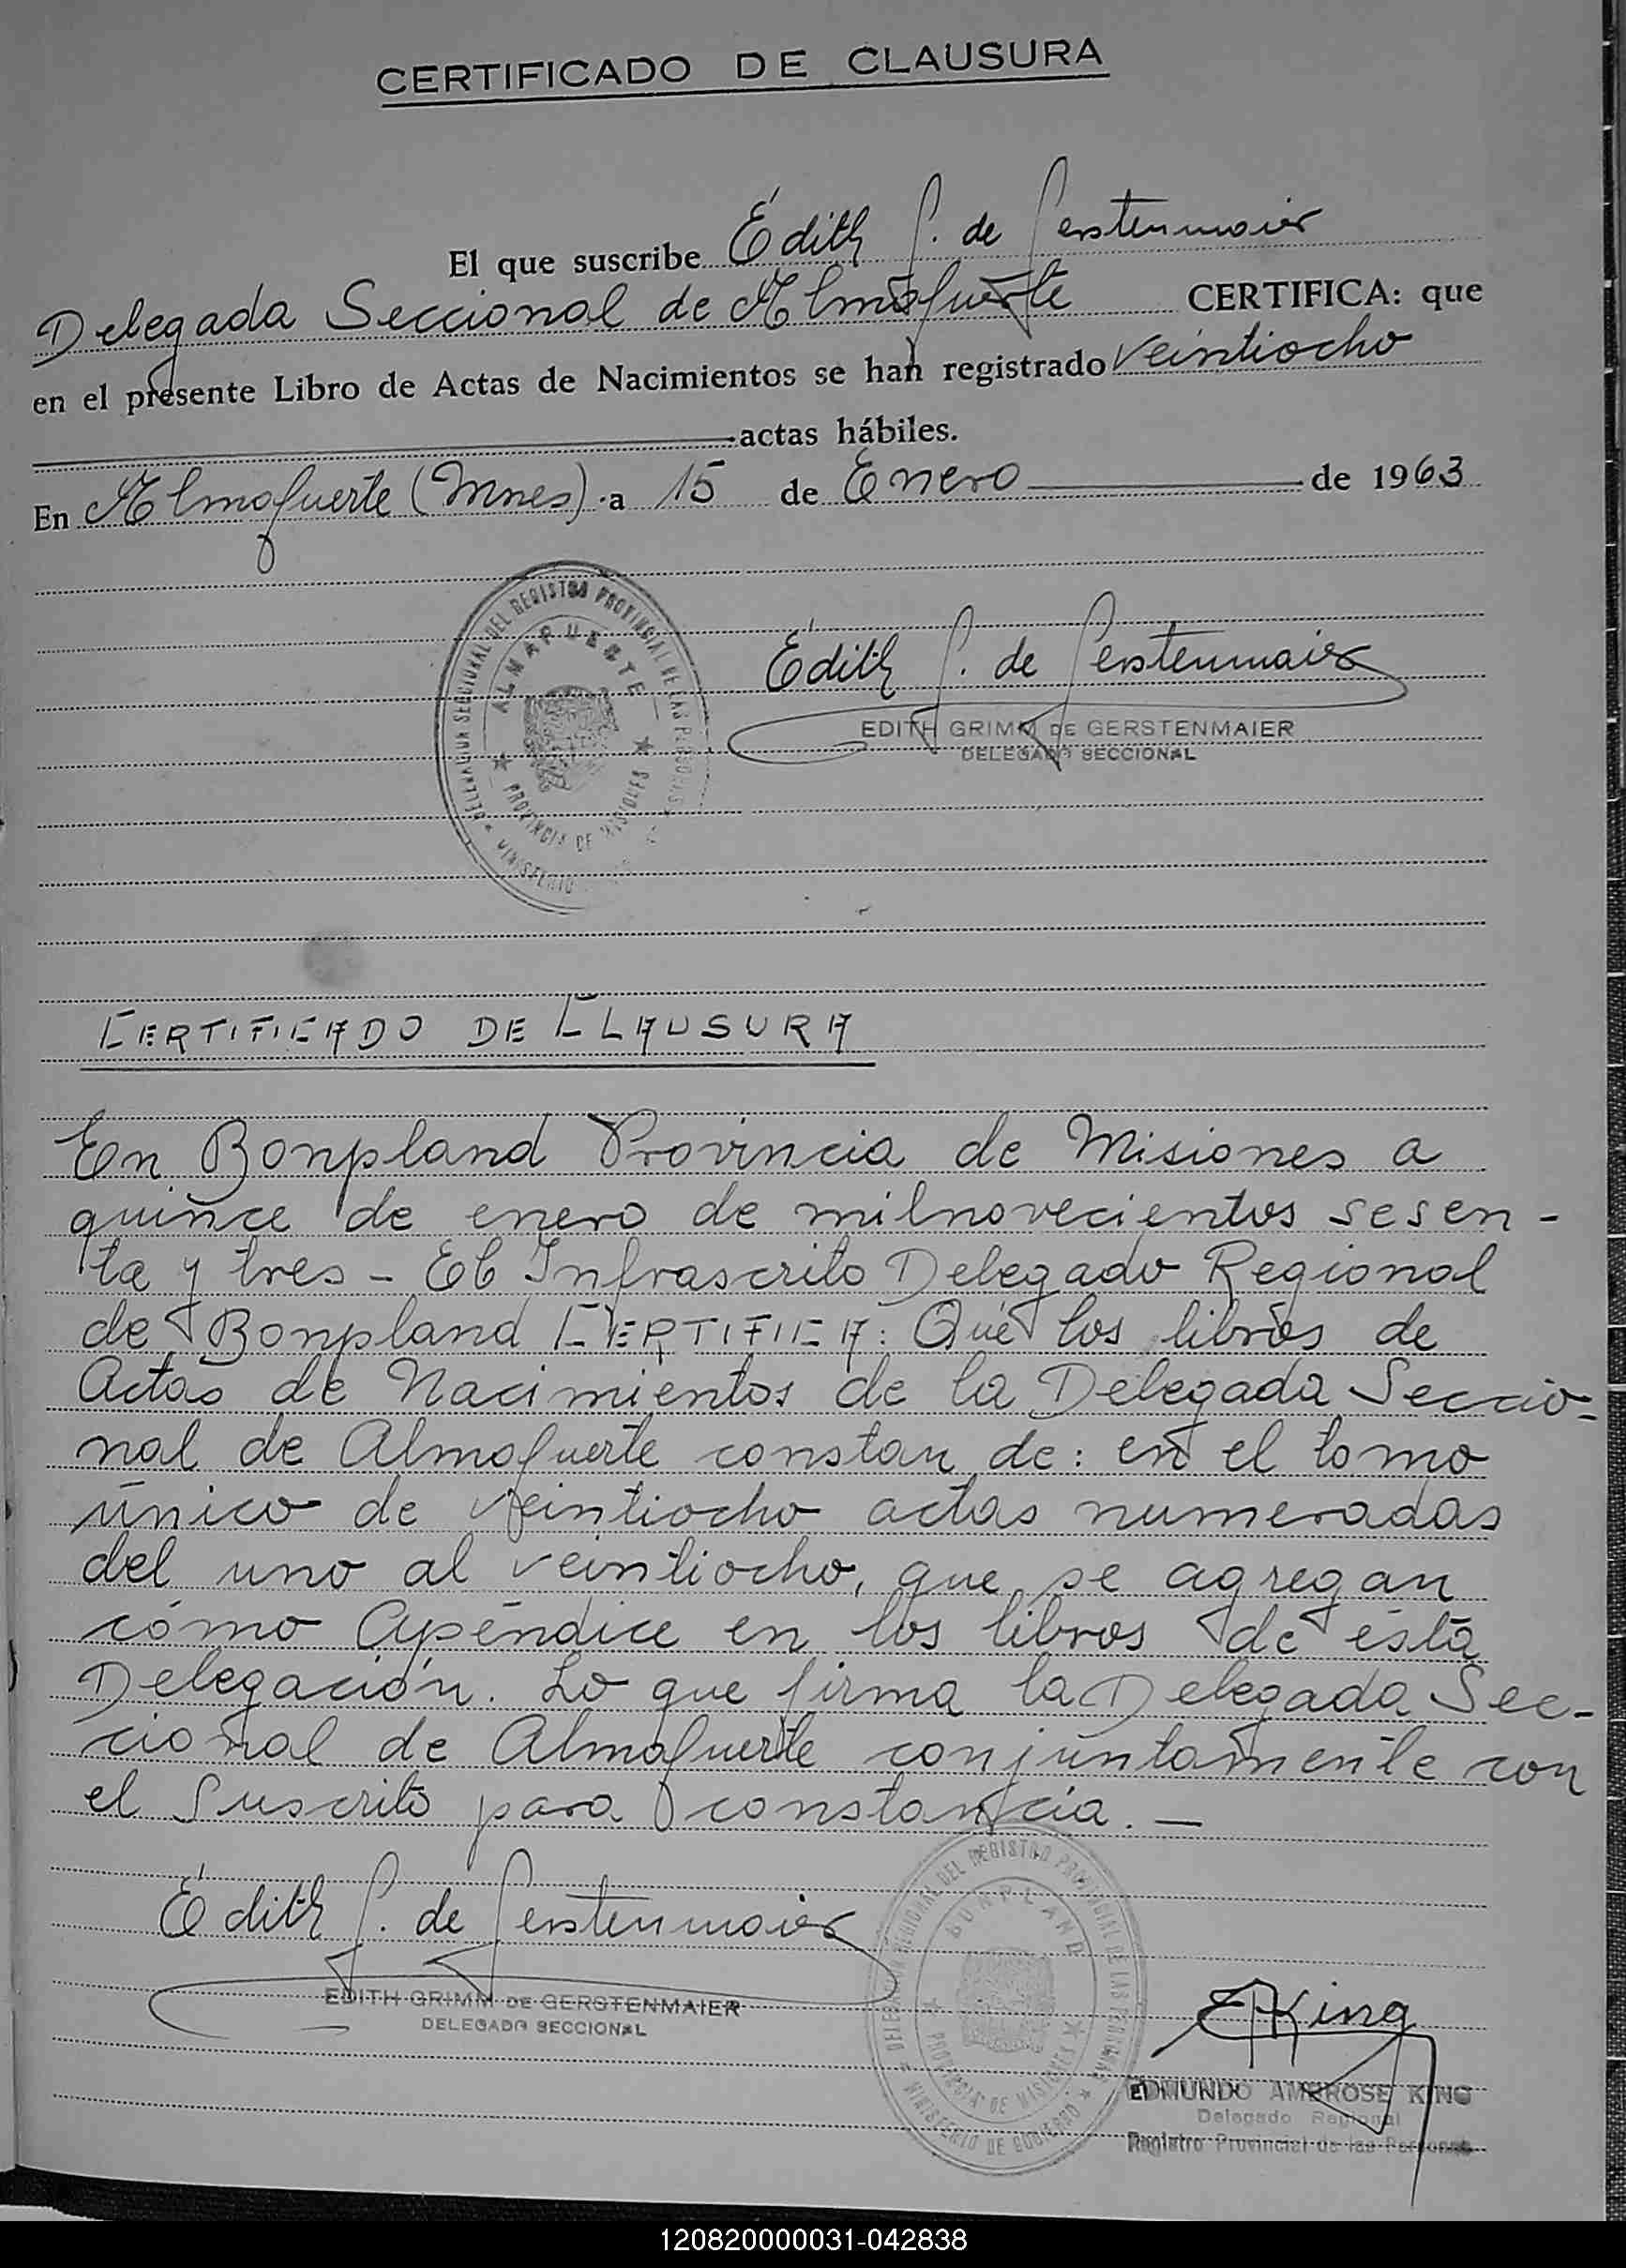 CERTIFICADO DE CLAUSURA
El que suscribe Edith G. de Gerstenmaier
Delegada Seccional de Almafuerte CERTIFICA: que
en el presente Libro de Actas de Nacimientos se han registrado veintiocho
actas hábiles.
En Almafuerte (Mnes) a 15 de Enero de 1963
DEL REGISTRO PROVINCIAL DE LAS PERSONAS
ALMAFUERTE
PROVINCIA DE MISIONES
MINISTERIO
Edith G. de Gerstenmaier
EDITH GRIMM DE GERSTENMAIER
DELEGADO SECCIONAL
CERTIFICADO DE CLAUSURA
En Bonpland Provincia de Misiones a
quince de enero de milnovecientos sesen-
ta y tres - El Infrascrito Delegado Regional
de Bonpland CERTIFICA: Qué los libros de
Actas de Nacimientos de la Delegada Seccio-
nal de Almafuerte constan de: en el tomo
único de veintiocho actas numeradas
del uno al veintiocho, que se agregan
cómo Apéndice en los libros de ésta
Delegación. Lo que firma la Delegada Sec-
cional de Almafuerte conjuntamente con
el Suscrito para constancia. —
Edith G. de Gerstenmaier
EDITH GRIMM DE GERSTENMAIER
DELEGADO SECCIONAL
DELEGACION REGIONAL DEL REGISTRO PROVINCIAL DE LAS PERSONAS
BONPLAND
PROVINCIA DE MISIONES
MINISTERIO DE GOBIERNO
EAKing
EDMUNDO AMBROSE KING
Delegado Regional
Registro Provincial de las Personas
120820000031-042838